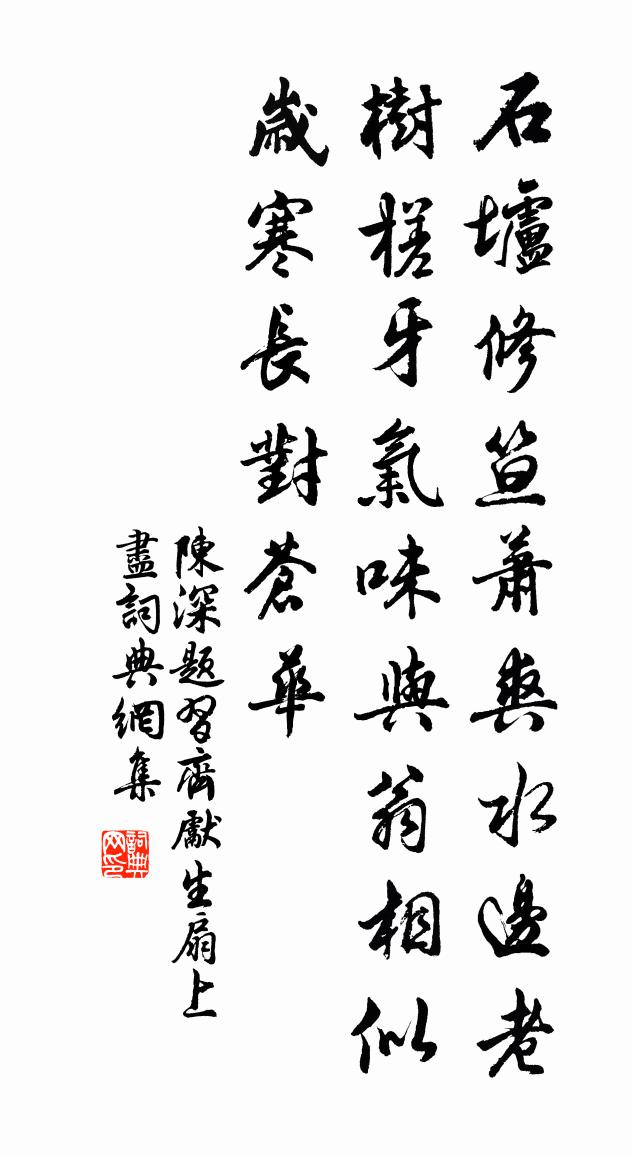 石壚修笪蕭爽水邊老
樹槎牙氣味與翁相似
歲寒長對蒼華
陳深題習齊獻生扇上
畫詞典網集
詞典网印